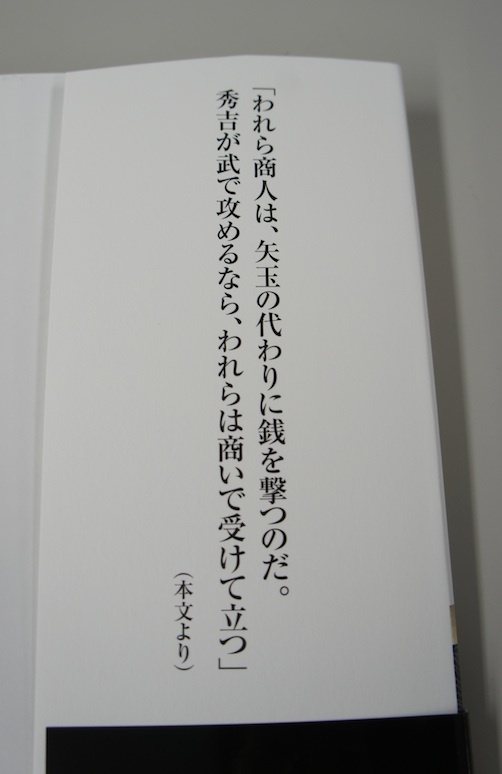 「われら商人は、矢玉の代わりに銭を撃つのだ。
秀吉が武で攻めるなら、われらは商いで受けて立つ」
（本文より）